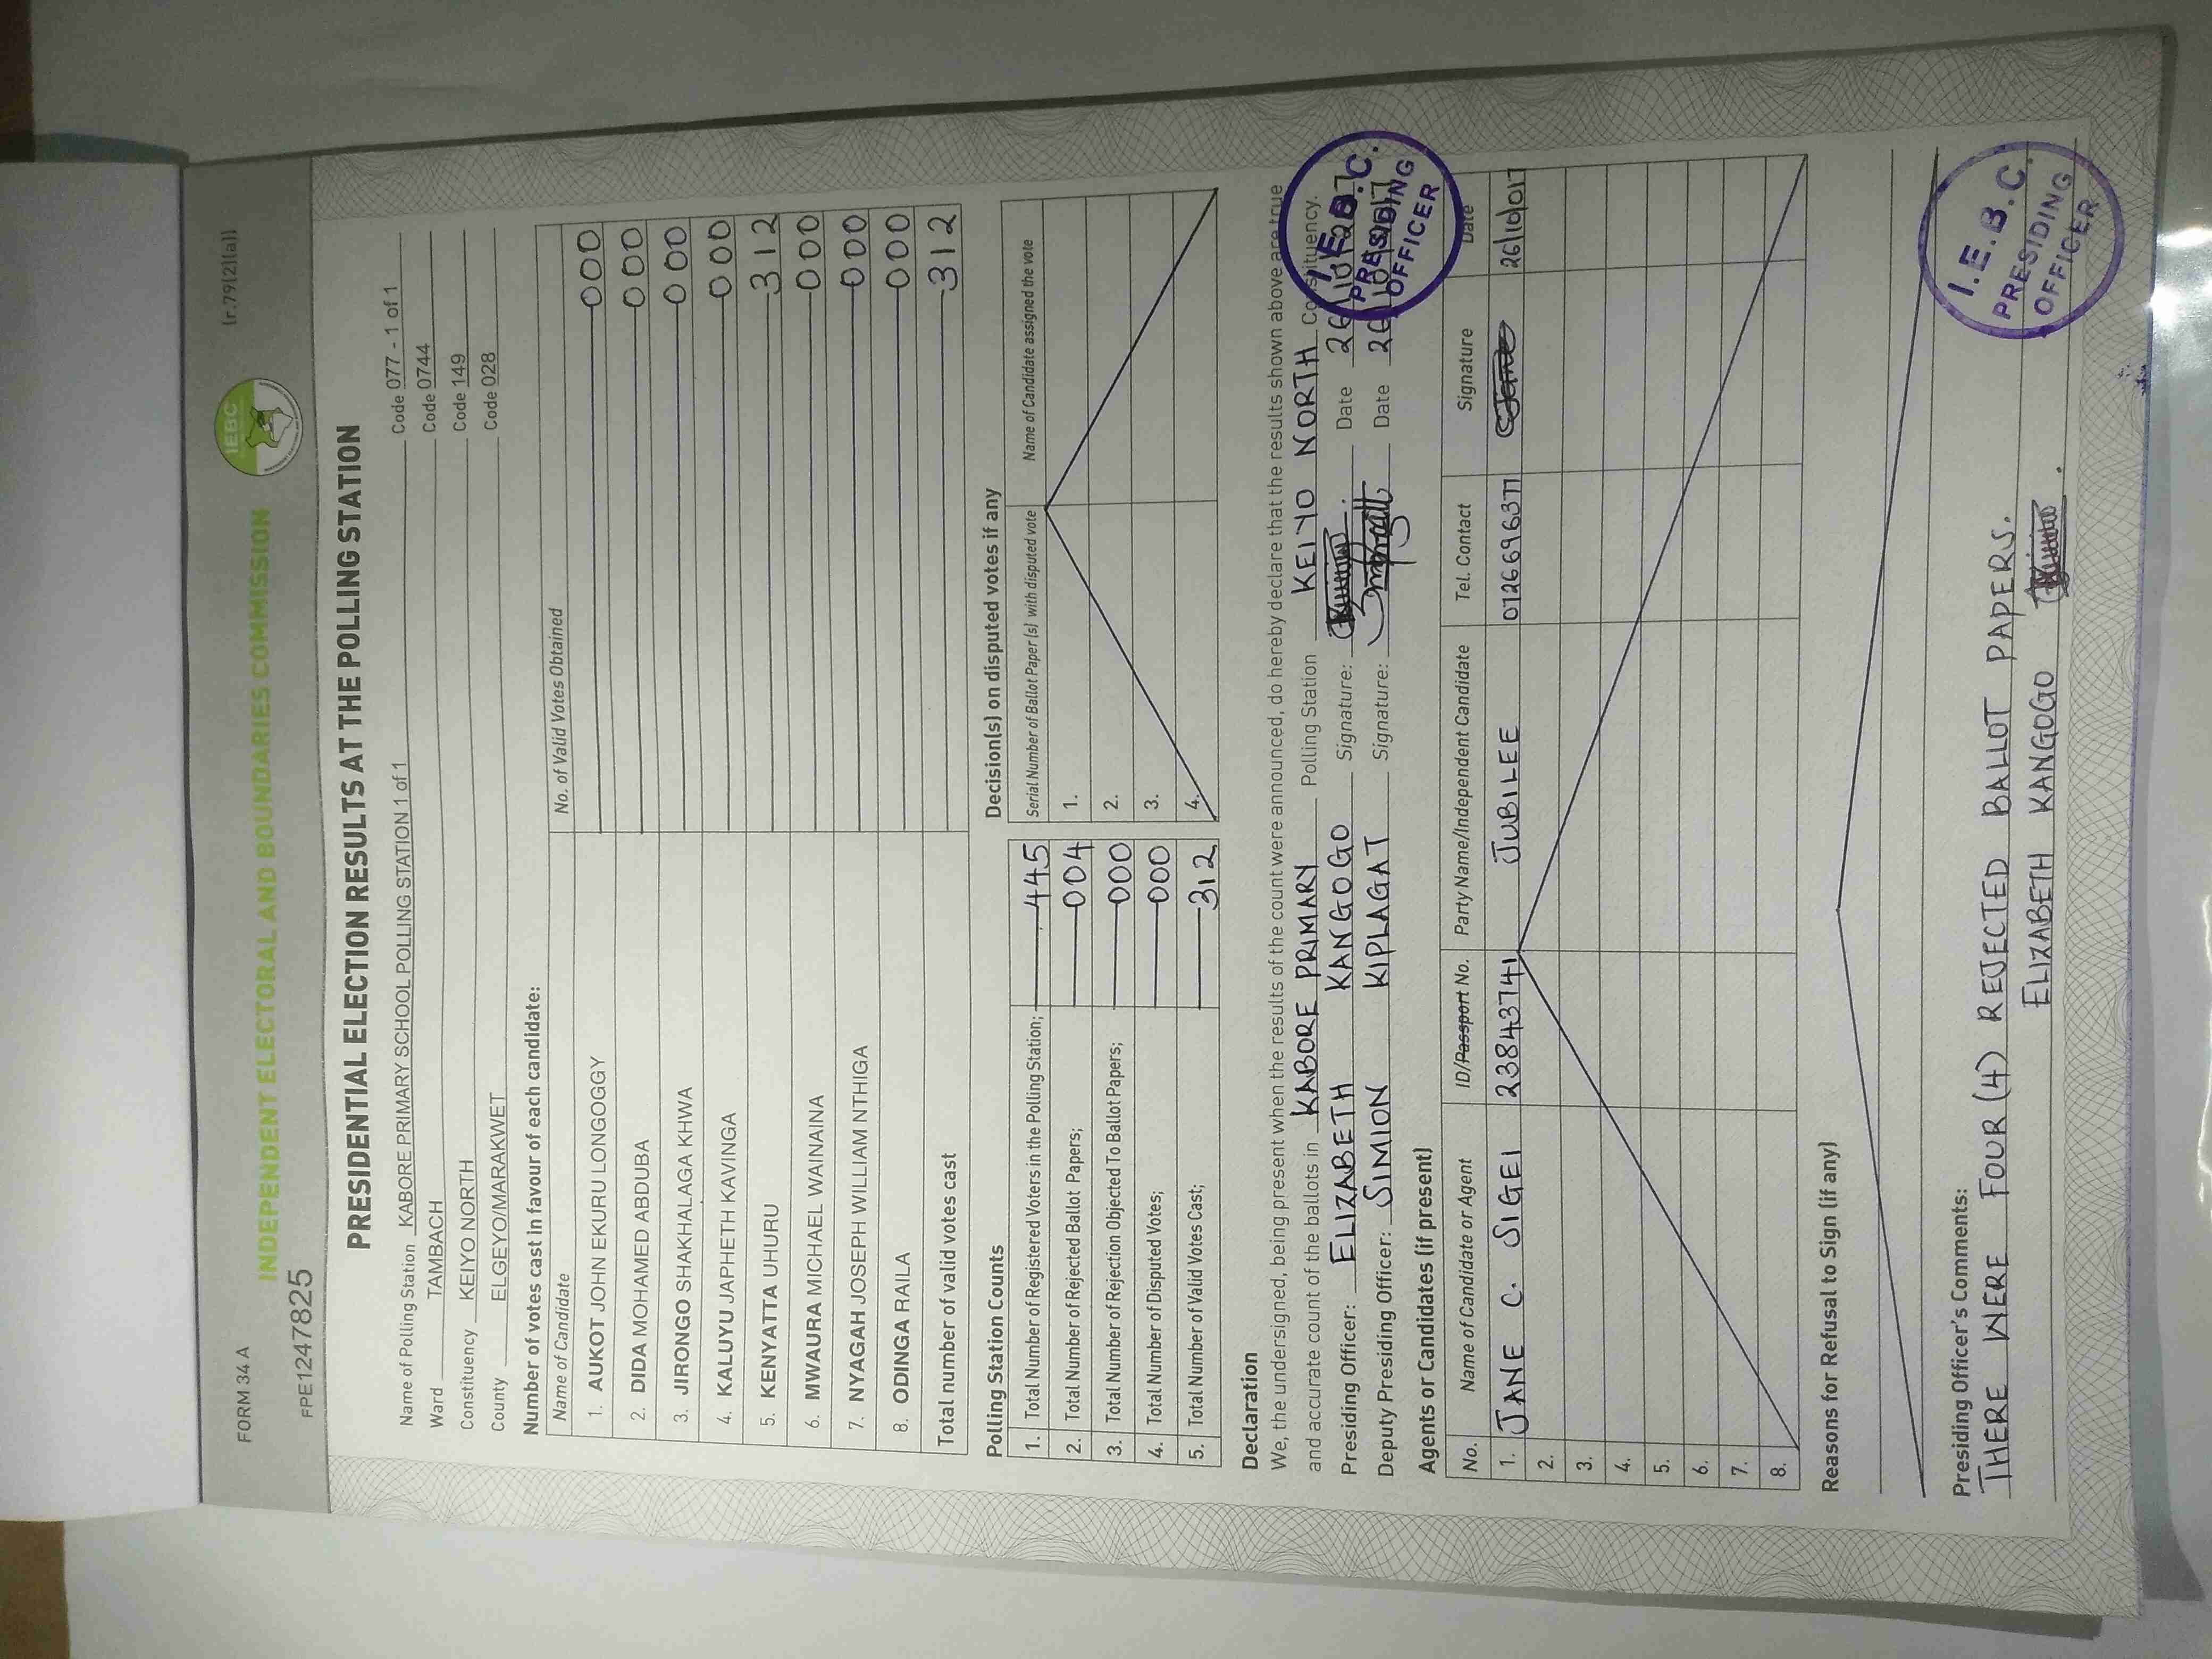 FORM 34 A
(r.79(2)(a))
INDEPENDENT ELECTORAL AND BOUNDARIES COMMISSION
IEBC
FPE1247825
PRESIDENTIAL ELECTION RESULTS AT THE POLLING STATION
Name of Polling Station KABORE PRIMARY SCHOOL POLLING STATION 1 of 1 Code 077 - 1 of 1
Ward TAMBACH Code 0744
Constituency KEIYO NORTH Code 149
County ELGEYO/MARAKWET Code 028
Number of votes cast in favour of each candidate:
Name of Candidate No. of Valid Votes Obtained
1. AUKOT JOHN EKURU LONGOGGY 000
2. DIDA MOHAMED ABDUBA 000
3. JIRONGO SHAKHALAGA KHWA 000
4. KALUYU JAPHETH KAVINGA 000
5. KENYATTA UHURU 312
6. MWAURA MICHAEL WAINAINA 000
7. NYAGAH JOSEPH WILLIAM NTHIGA 000
8. ODINGA RAILA 000
Total number of valid votes cast 312
Polling Station Counts
1. Total Number of Registered Voters in the Polling Station; 445
2. Total Number of Rejected Ballot Papers; 004
3. Total Number of Rejection Objected To Ballot Papers; 000
4. Total Number of Disputed Votes; 000
5. Total Number of Valid Votes Cast; 312
Decision(s) on disputed votes if any
Serial Number of Ballot Paper (s) with disputed vote Name of Candidate assigned the vote
1.
2.
3.
4.
Declaration
We, the undersigned, being present when the results of the count were announced, do hereby declare that the results shown above are true
and accurate count of the ballots in KABORE PRIMARY Polling Station KEIYO NORTH Constituency.
Presiding Officer: ELIZABETH KANGOGO Signature: Date 26/10/2017
Deputy Presiding Officer: SIMION KIPLAGAT Signature: Date 26/10/2017
I.E.B.C.
PRESIDING
OFFICER
Agents or Candidates (if present)
No. Name of Candidate or Agent ID/Passport No. Party Name/Independent Candidate Tel. Contact Signature Date
1. JANE C. SIGEI 23843741 JUBILEE 0726696377 26/10/017
2.
3.
4.
5.
6.
7.
8.
Reasons for Refusal to Sign (if any)
Presiding Officer's Comments:
THERE WERE FOUR (4) REJECTED BALLOT PAPERS.
ELIZABETH KANGOGO
I.E.B.C.
PRESIDING
OFFICER